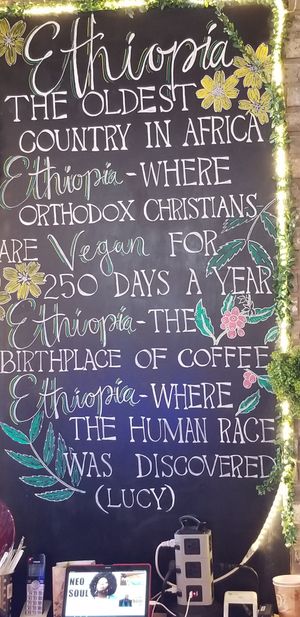 Ethiopia
THE OLDEST
COUNTRY IN AFRICA
Ethiopia-WHERE
ORTHODOX CHRISTIANS
ARE Vegan FOR
250 DAYS A YEAR
Ethiopia-THE
BIRTHPLACE OF COFFEE
Ethiopia-WHERE
THE HUMAN RACE
WAS DISCOVERED
(LUCY)
NEO
SOUL